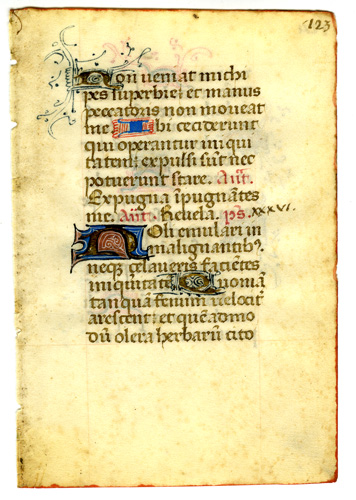 123
Non veniat michi
pes superbie: et manus
peccatoris non moveat
me. Ibi ceciderunt
qui operantur iniqui
tatem: expulsi sūt nec
potuerunt stare. Añ.
Expugna īpugnātes
me. Añ. Revela. ps. xxxvi.
Noli emulari in
malignantib9:
neq3 celaveris faciētes
iniquitatē. Quoniā
tanquā fenum velocit̄
arescent: et quēadmo
dū olera herbarū cito